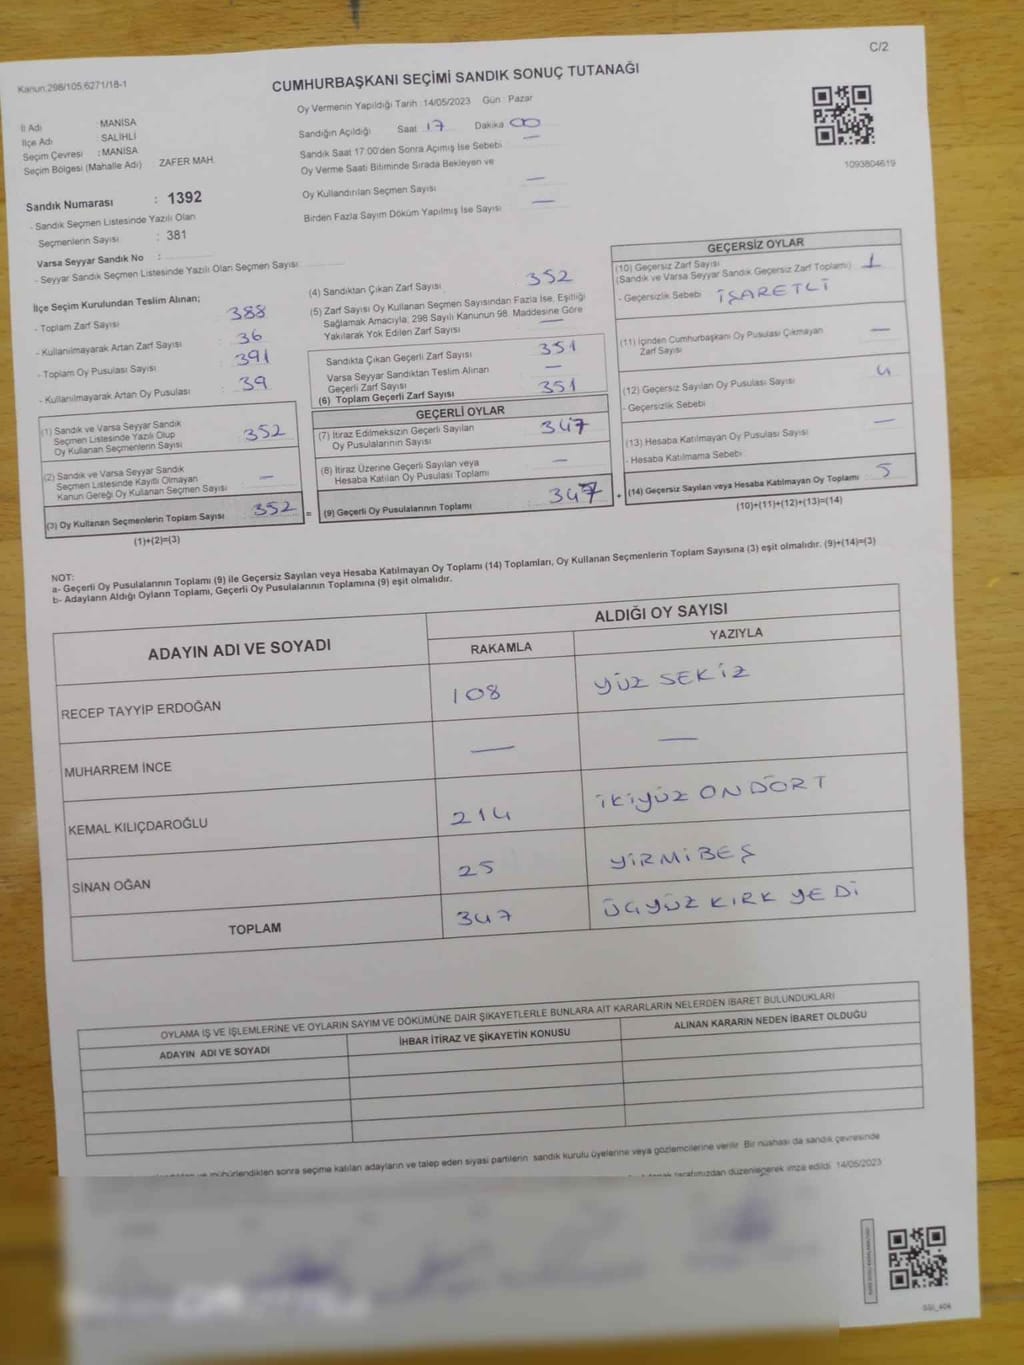 C/2
Kanun.298/105.6271/18-1
CUMHURBAŞKANI SEÇİMİ SANDIK SONUÇ TUTANAĞI
Oy Vermenin Yapıldığı Tarih : 14/05/2023 Gün : Pazar
İl Adı : MANİSA
İlçe Adı : SALİHLİ
Seçim Çevresi : MANİSA
Seçim Bölgesi (Mahalle Adı) ZAFER MAH.
Sandık Numarası : 1392
- Sandık Seçmen Listesinde Yazılı Olan
Seçmenlerin Sayısı : 381
Varsa Seyyar Sandık No :
- Seyyar Sandık Seçmen Listesinde Yazılı Olan Seçmen Sayısı
Sandığın Açıldığı Saat 17 Dakika 00
Sandık Saat 17:00'den Sonra Açımış İse Sebebi —
Oy Verme Saati Bitiminde Sırada Bekleyen ve
Oy Kullandırılan Seçmen Sayısı —
Birden Fazla Sayım Döküm Yapılmış İse Sayısı —
1093804619
İlçe Seçim Kurulundan Teslim Alınan;
- Toplam Zarf Sayısı : 388
- Kullanılmayarak Artan Zarf Sayısı : 36
- Toplam Oy Pusulası Sayısı : 391
- Kullanılmayarak Artan Oy Pusulası : 39
(1) Sandık ve Varsa Seyyar Sandık
Seçmen Listesinde Yazılı Olup
Oy Kullanan Seçmenlerin Sayısı 352
(2) Sandık ve Varsa Seyyar Sandık
Seçmen Listesinde Kayıtlı Olmayan
Kanun Gereği Oy Kullanan Seçmen Sayısı —
(3) Oy Kullanan Seçmenlerin Toplam Sayısı 352
(1)+(2)=(3)
=
(4) Sandıktan Çıkan Zarf Sayısı 352
(5) Zarf Sayısı Oy Kullanan Seçmen Sayısından Fazla İse, Eşitliği
Sağlamak Amacıyla; 298 Sayılı Kanunun 98. Maddesine Göre
Yakılarak Yok Edilen Zarf Sayısı —
Sandıkta Çıkan Geçerli Zarf Sayısı 351
Varsa Seyyar Sandıktan Teslim Alınan
Geçerli Zarf Sayısı —
(6) Toplam Geçerli Zarf Sayısı 351
GEÇERLİ OYLAR
(7) İtiraz Edilmeksizin Geçerli Sayılan
Oy Pusulalarının Sayısı 347
(8) İtiraz Üzerine Geçerli Sayılan veya
Hesaba Katılan Oy Pusulası Toplamı —
(9) Geçerli Oy Pusulalarının Toplamı 347
+
GEÇERSİZ OYLAR
(10) Geçersiz Zarf Sayısı
(Sandık ve Varsa Seyyar Sandık Geçersiz Zarf Toplamı) 1
- Geçersizlik Sebebi İŞARETLİ
(11) İçinden Cumhurbaşkanı Oy Pusulası Çıkmayan
Zarf Sayısı —
(12) Geçersiz Sayılan Oy Pusulası Sayısı 4
- Geçersizlik Sebebi
(13) Hesaba Katılmayan Oy Pusulası Sayısı —
- Hesaba Katılmama Sebebi
(14) Geçersiz Sayılan veya Hesaba Katılmayan Oy Toplamı 5
(10)+(11)+(12)+(13)=(14)
NOT:
a- Geçerli Oy Pusulalarının Toplamı (9) ile Geçersiz Sayılan veya Hesaba Katılmayan Oy Toplamı (14) Toplamları, Oy Kullanan Seçmenlerin Toplam Sayısına (3) eşit olmalıdır. (9)+(14)=(3)
b- Adayların Aldığı Oyların Toplamı, Geçerli Oy Pusulalarının Toplamına (9) eşit olmalıdır.
ADAYIN ADI VE SOYADI ALDIĞI OY SAYISI
RAKAMLA YAZIYLA
RECEP TAYYİP ERDOĞAN 108 YÜZ SEKİZ
MUHARREM İNCE — —
KEMAL KILIÇDAROĞLU 214 İKİYÜZ ONDÖRT
SİNAN OĞAN 25 YİRMİBEŞ
TOPLAM 347 ÜÇYÜZ KIRK YEDİ
OYLAMA İŞ VE İŞLEMLERİNE VE OYLARIN SAYIM VE DÖKÜMÜNE DAİR ŞİKAYETLERLE BUNLARA AİT KARARLARIN NELERDEN İBARET BULUNDUKLARI
ADAYIN ADI VE SOYADI İHBAR İTİRAZ VE ŞİKAYETİN KONUSU ALINAN KARARIN NEDEN İBARET OLDUĞU
sonra seçime katılan adayların ve talep eden siyasi partilerin sandık kurulu üyelerine veya gözlemcilerine verilir. Bir nüshası da sandık çevresinde
tarafımızdan düzenlenerek imza edildi. 14/05/2023